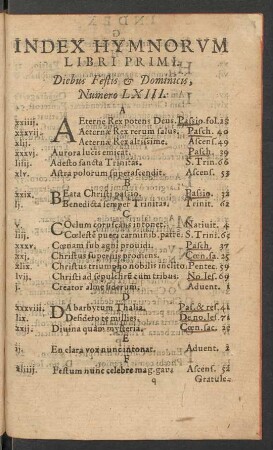 INDEX HYMNORVM
LIBRI PRIMI.
Diebus Festis & Dominicis,
Numero LXIII.
A
xxiiij. AEternæ Rex potens Deus, Passio. fol. 28
xxxvij. Aeternæ Rex rerum salus, Pasch. 40
Aeternæ Rex altissime. Ascens. 49
xxxvj. Aurora lucis emicat, Pasch. 39
Adesto sancta Trinitas, S. Trin. 66
xlv. Astra polorum superascendit. Ascens. 53
xxix. BEata Christi passio. 32
lj. Benedicta semper Trinitas, Trinit. 62
C
v. COelum coruscans intonet. Natiuit. 4
S. Trinit. 65
xxxv. Cœnam cum agni prouidi. Pasch. 37
xxj. Christus superius prodiens. Cœn. sa. 25
xlix. Christus triumpho nobilis inclito. Pente. 59
lvij. Christi ad sepulchrum eum tribus. No. les. 69
j. Creator alme siderum. Aduent. 1
D
xxxviij. DAbarbytum Thalia. Pas. & res. 41
lix. Desidero te millies. De no. Ies. 71
xxij. Diuina quæ mysteria. Cœn. sac. 25
E
ij. En clara vox nunc intonat. Aduent. 2
F
xliiij. Festum nunc celebre mag. gau. Ascens. 52
q Gratule.